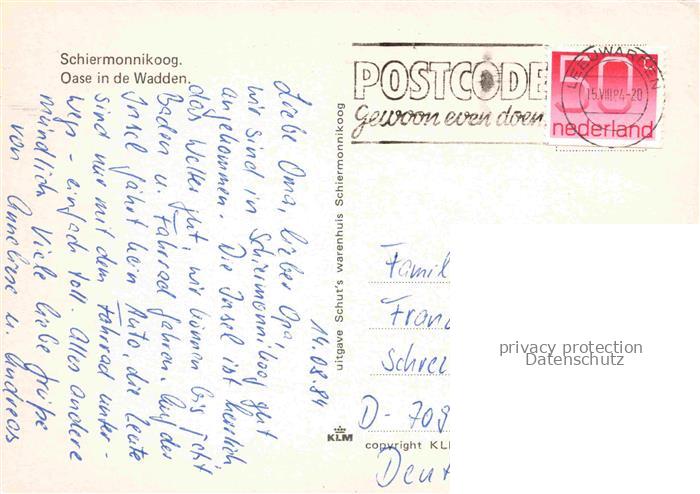 Schiermonnikoog.
Oase in de Wadden.
14.08.84
Liebe Oma, lieber Opa,
wir sind in Schiermonnikoog gut
angekommen. Die Insel ist herrlich
das Wetter gut, wir können bis jetzt
Baden u. Fahrrad fahren. Auf der
Insel fährt kein Auto, die Leute
sind nur mit dem Fahrrad unter-
wegs - einfach toll. Alles andere
mündlich Viele liebe Grüße
von Anneliese u. Andreas
uitgave Schut's warenhuis Schiermonnikoog
KLM
copyright KL
POSTCODE
Gewoon even doen
LEEUWARDEN
15.VIII.84-20
50
nederland
Famil
Fran
Schrei
D-709
Deut
privacy protection
Datenschutz